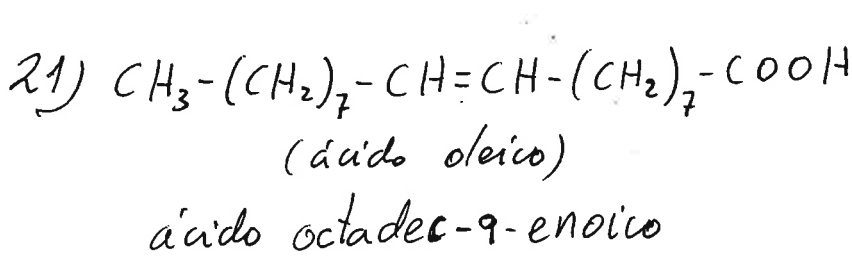 21) CH₃-(CH₂)₇-CH=CH-(CH₂)₇-COOH
(ácido oleico)
ácido octadec-9-enoico